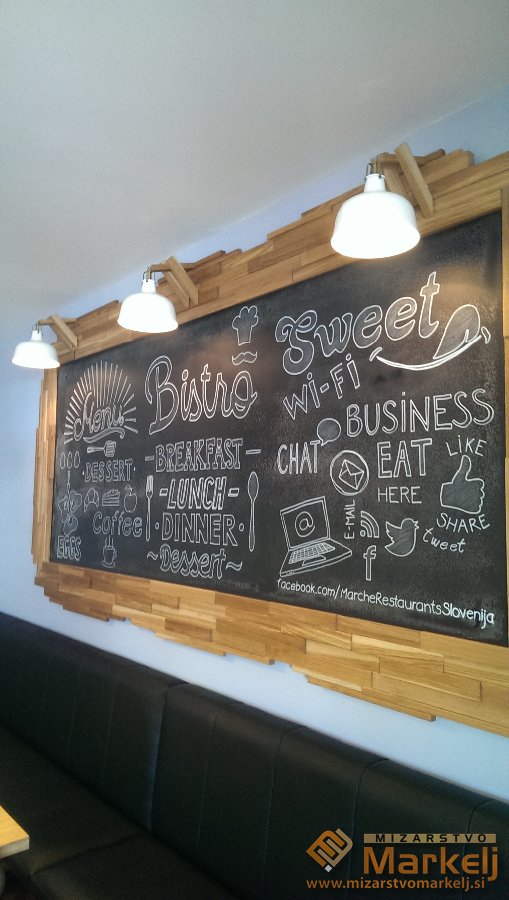 Menu
DESSERT
Coffee
EGGS
Bistrô
-BREAKFAST-
-LUNCH-
·DINNER·
~Dessert~
Sweet
Wi-Fi
BUSINESS
CHAT
EAT
HERE
LIKE
SHARE
@
E-MAIL
f
tweet
facebook.com/MarcheRestaurantsSlovenija
MIZARSTVO
Markelj
www.mizarstvomarkelj.si